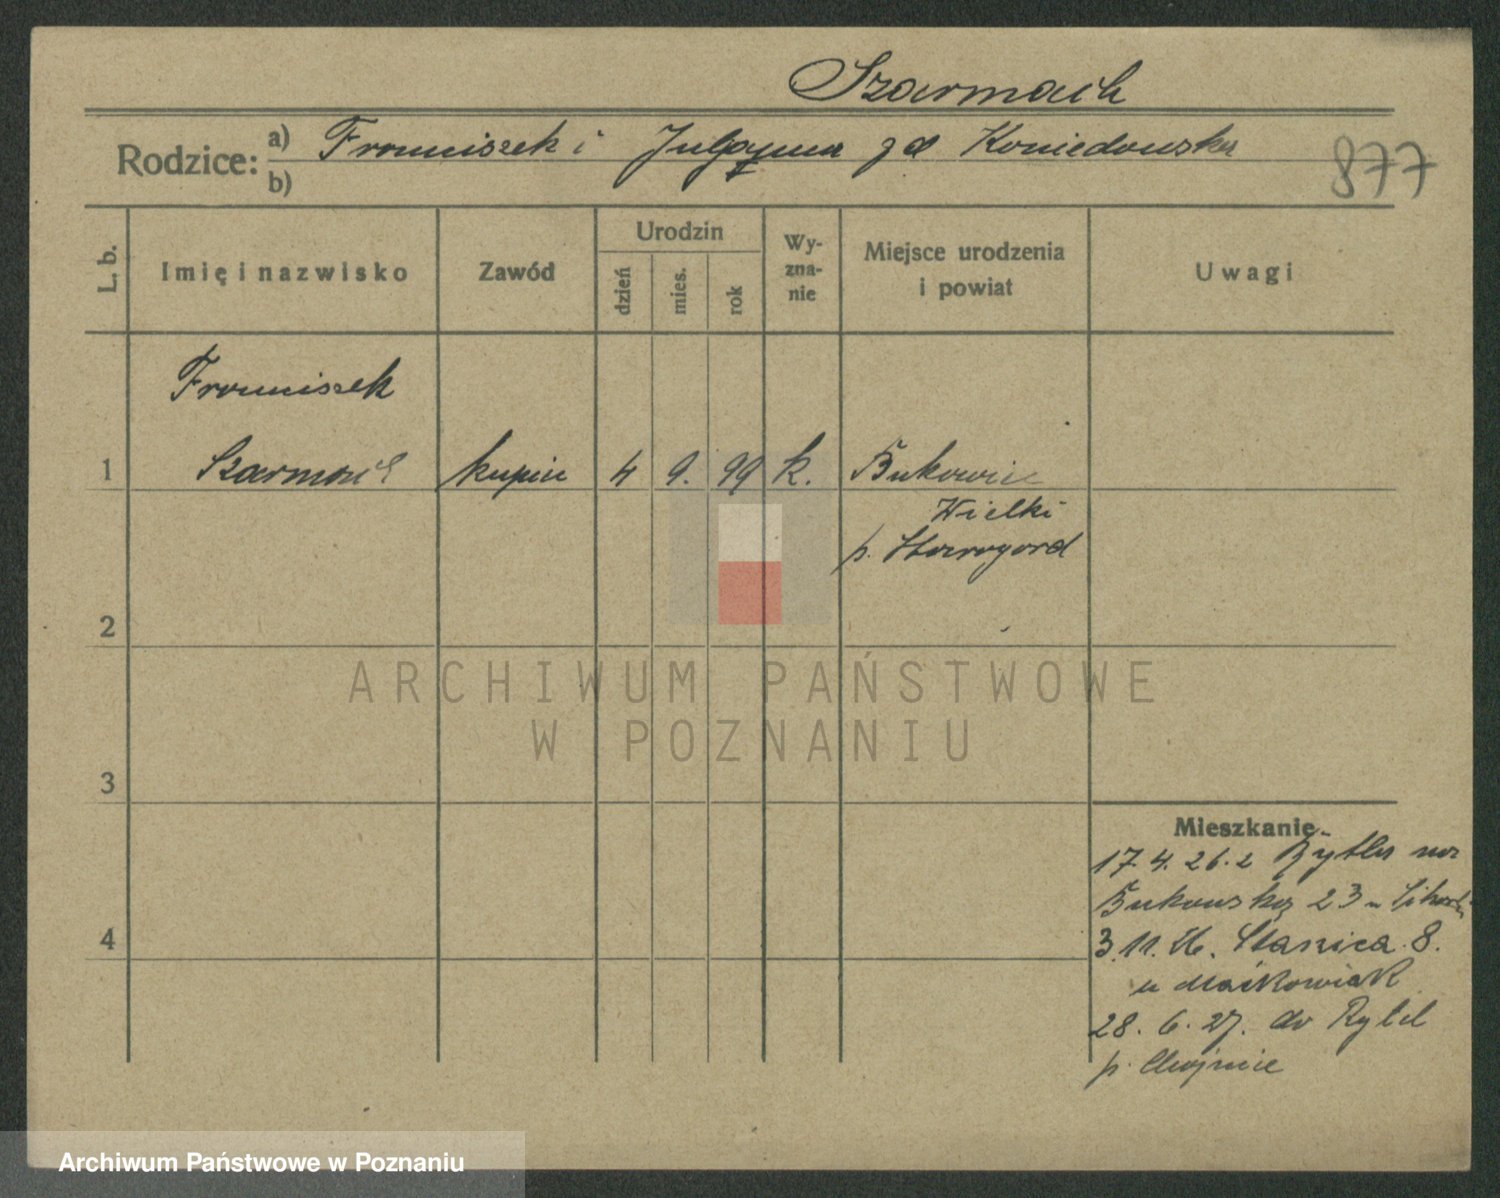 Szarmach
Rodzice: a) Franciszek i Julyanna zd Koniedowska
b)
877
L. b.
Imię i nazwisko
Zawód
Urodzin
dzień
mies.
rok
Wy-
zna-
nie
Miejsce urodzenia
i powiat
Uwagi
Franciszek
1 Szarmach kupiec 4 9. 99 k. Bukowiec
Wielki
p. Starogard
2
ARCHIWUM PAŃSTWOWE
W POZNANIU
3
Mieszkanie
17.4.26. z Rytla na
Bukowską 23
4
3.11.26. Staszica 8.
u Maćkowiak
28. 6. 27. do Rytel
p. Chojnice
Archiwum Państwowe w Poznaniu